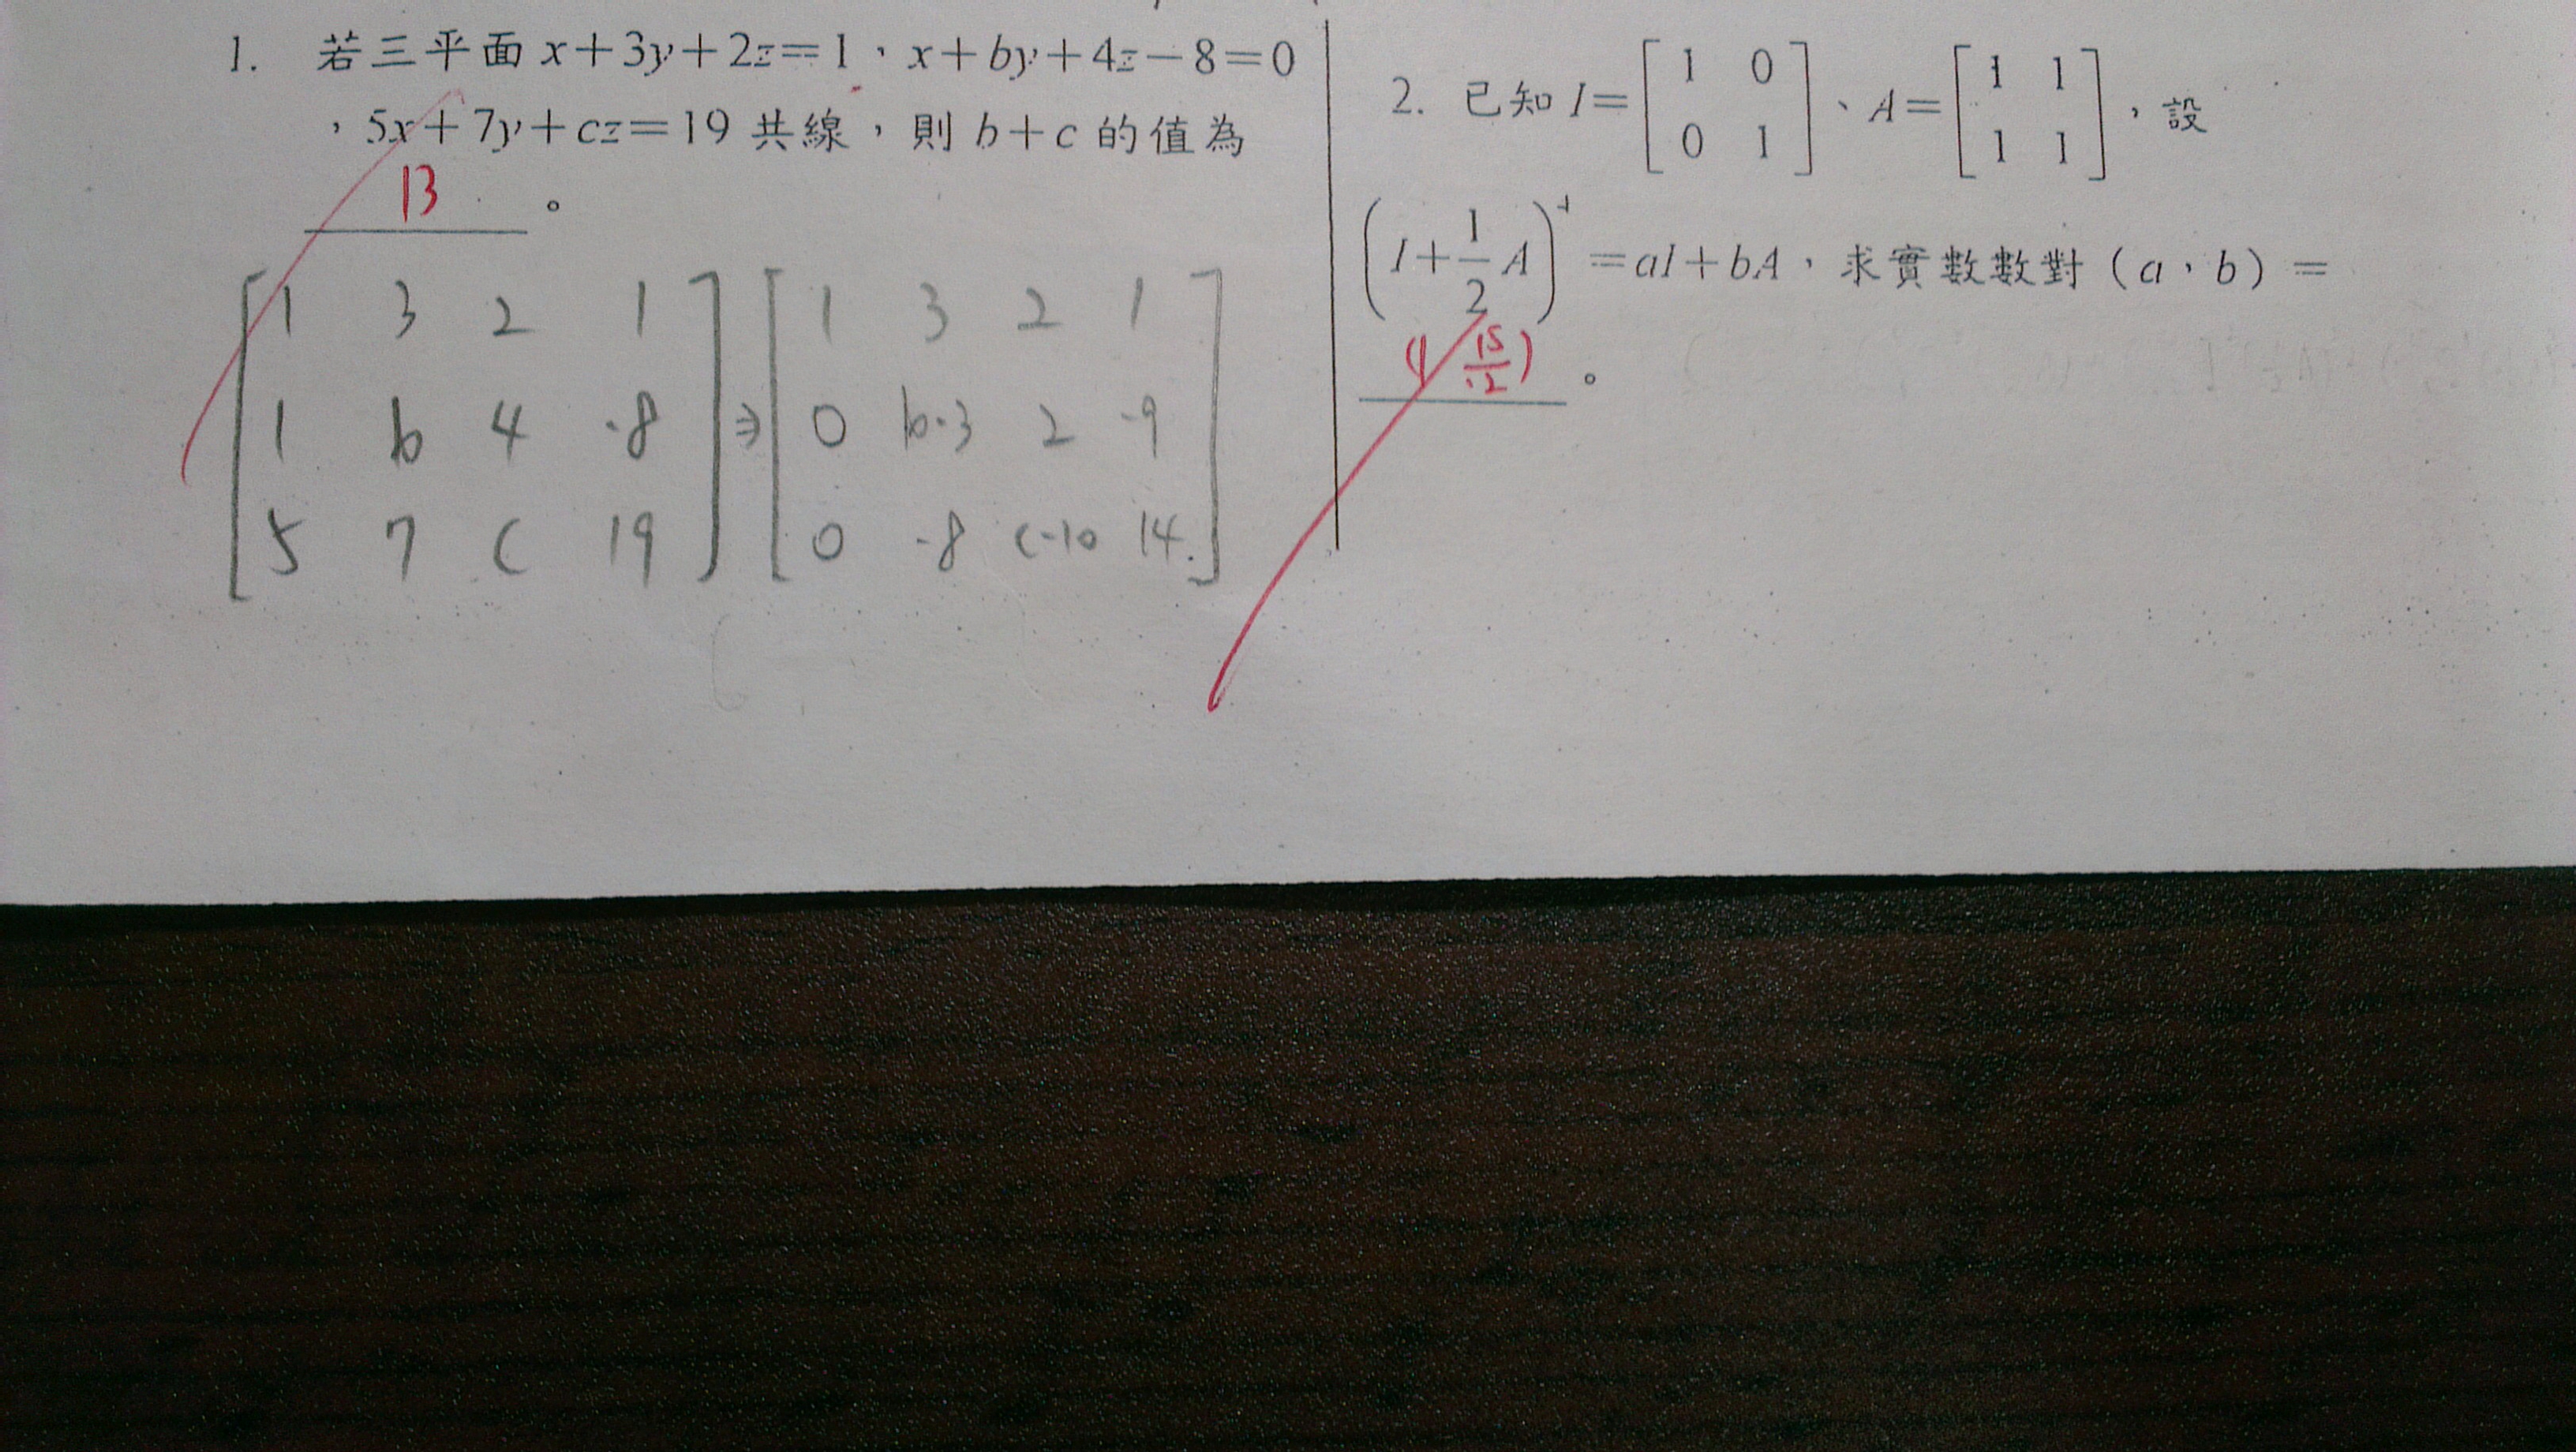 1. 若三平面 x+3y+2z=1，x+by+4z-8=0
，5x+7y+cz=19 共線，則 b+c 的值為
13 。
1 3 2 1
1 b 4 -8
5 7 c 19
⇒
1 3 2 1
0 b-3 2 -9
0 -8 c-10 14
2. 已知 I=[1 0; 0 1]、A=[1 1; 1 1]，設
(I+1/2 A) =aI+bA，求實數數對（a，b）=
15/2) 。